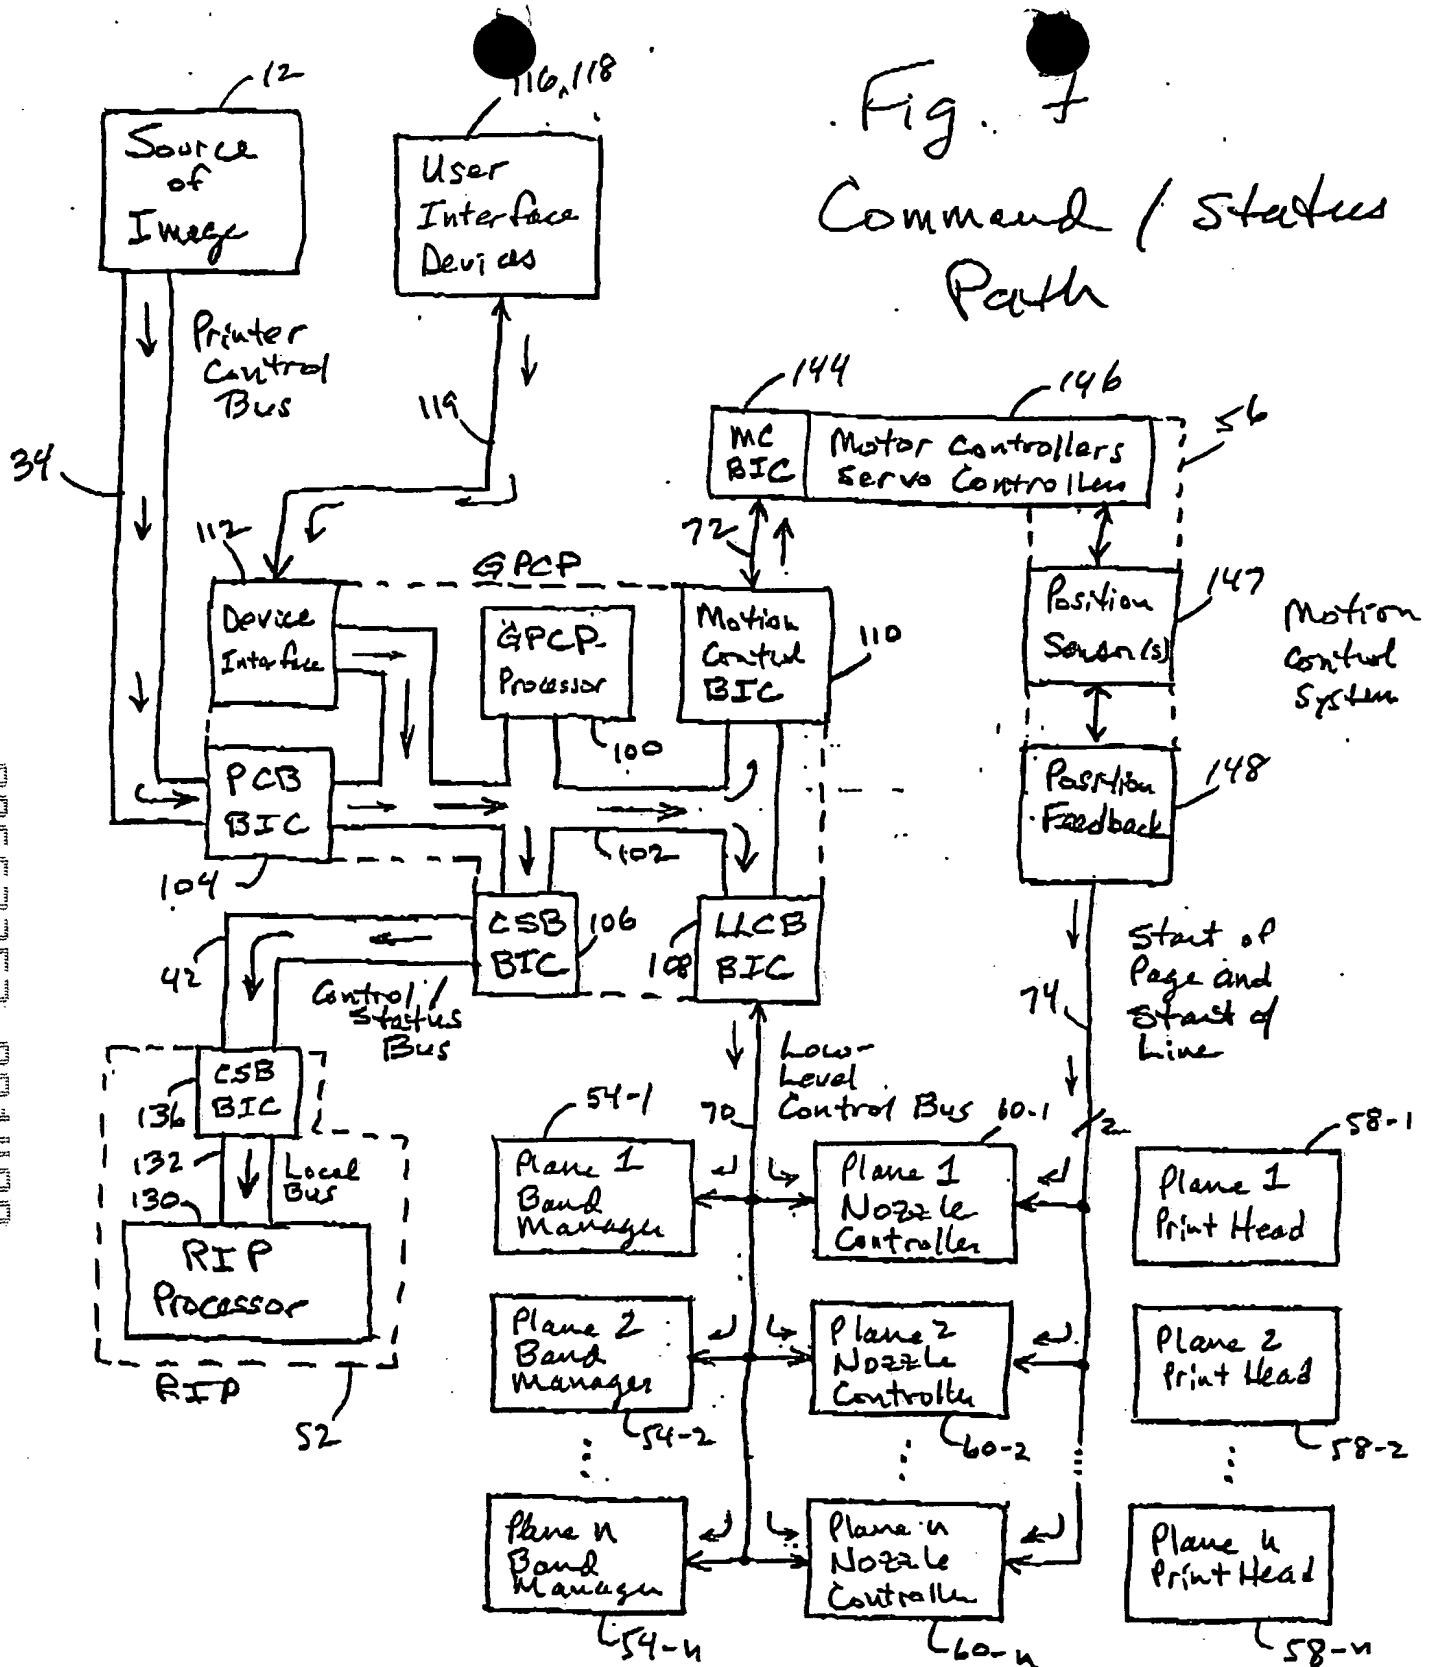 12
116, 118
Fig. 7
Source
of
Image
User
Interface
Devices
Command / Status
Path
Printer
Control
Bus
34
119
144
146
56
MC
BIC
Motor Controllers
Servo Controllers
72
112
GPCP
Device
Interface
GPCP
Processor
100
Motion
Control
BIC
110
Position
Sensor(s)
147
Motion
Control
System
PCB
BIC
104
102
Position
Feedback
148
CSB
BIC
106
LLCB
BIC
108
42
Control /
Status
Bus
74
Start of
Page and
Start of
Line
CSB
BIC
136
132
130
Local
Bus
RIP
Processor
RIP
52
Low-
Level
Control Bus
70
2
54-1
Plane 1
Band
Manager
60-1
Plane 1
Nozzle
Controller
58-1
Plane 1
Print Head
Plane 2
Band
Manager
54-2
Plane 2
Nozzle
Controller
60-2
Plane 2
Print Head
58-2
Plane n
Band
Manager
54-n
Plane n
Nozzle
Controller
60-n
Plane n
Print Head
58-n